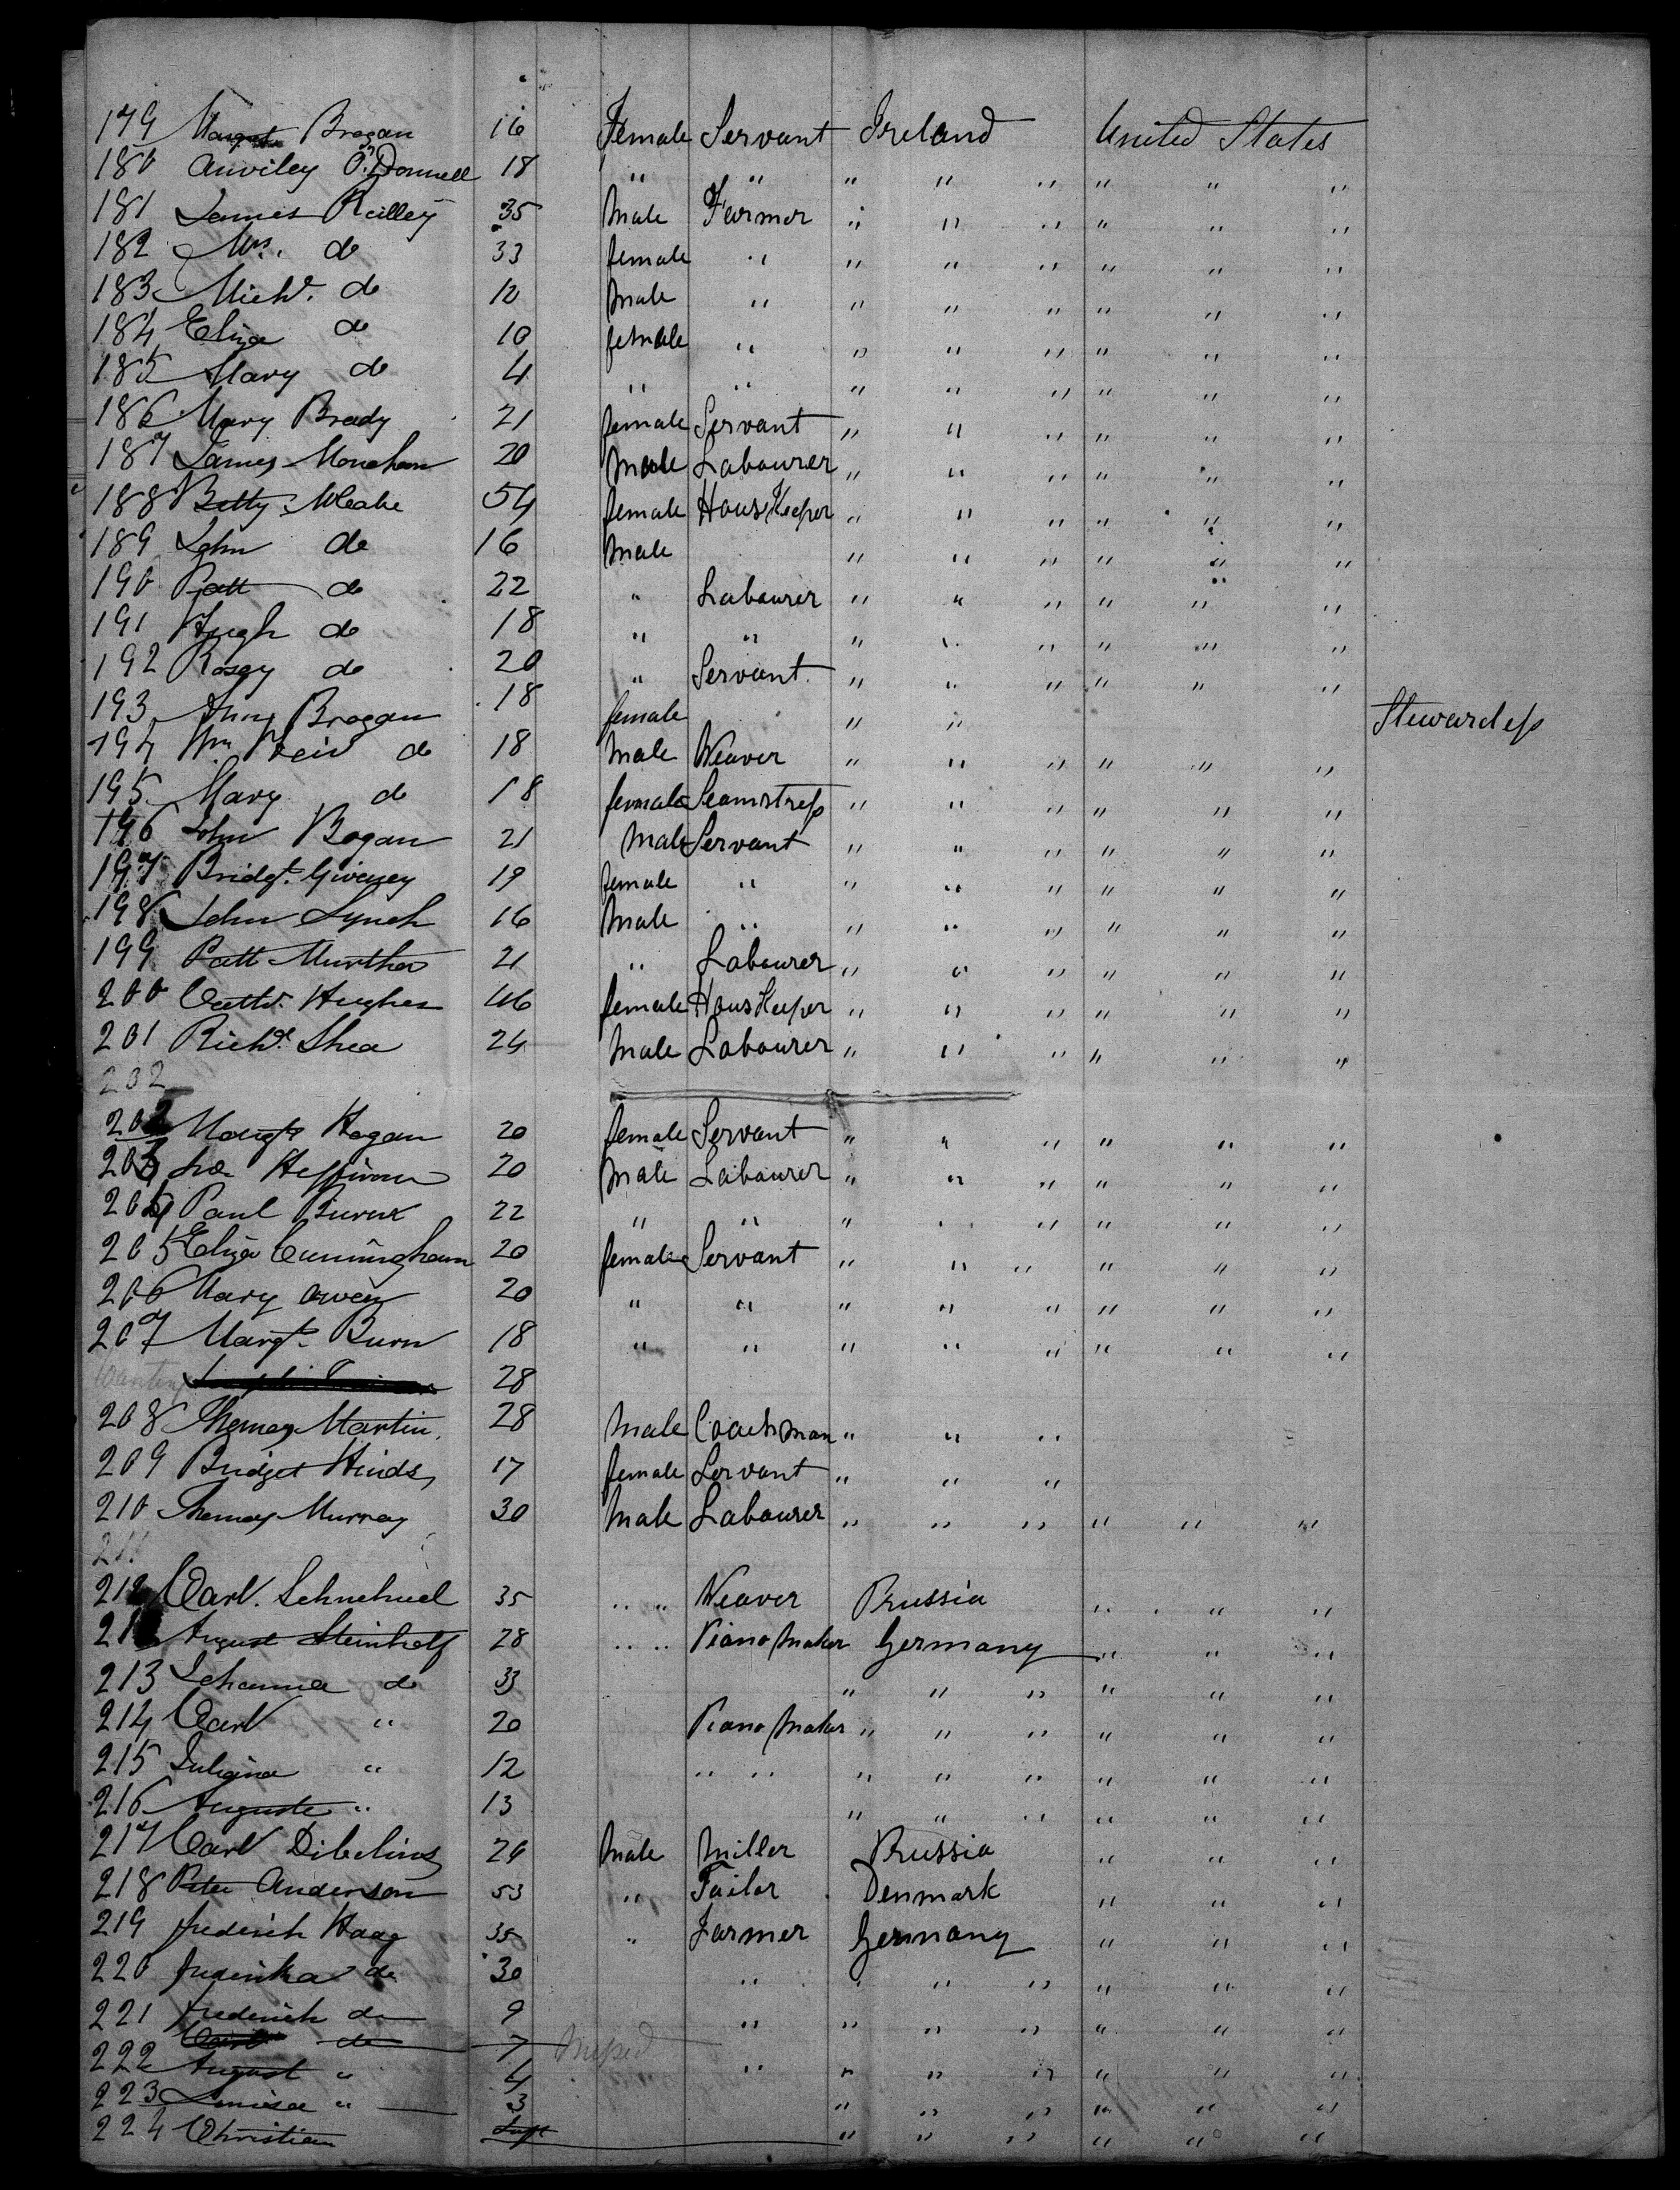 179 Margt Brogan 16 Female Servant Ireland United States
180 O'Donnell 18 " " " " " " " "
181 James Reilley 35 Male Farmer " " " " " "
182 Mrs. do 33 female " " " " " " "
183 Michl. do 12 Male " " " " " " "
184 Eliza do 10 female " " " " " " "
185 Mary do 4 " " " " " " " "
186 Mary Brady 21 female Servant " " " " " "
187 James Monahan 20 Male Labourer " " " " " "
188 Betty McCabe 54 female HouseKeeper " " " " " "
189 John do 16 Male " " " " " "
190 Patt do 22 " Labourer " " " " " "
191 Hugh do 18 " " " " " " " "
192 Rosey do 20 " Servant " " " " " "
193 Brogan 18 female " " Stewardess
194 Wm Reid do 18 Male Weaver " " " " " "
195 Mary do 18 female Seamstress " " " " " "
196 John Bogan 21 Male Servant " " " " " "
197 Bridgt. 19 female " " " " " " "
198 John Lynch 16 Male " " " " " " "
199 Patt Murtha 21 " Labourer " " " " " "
200 Cathr. Hughes 46 female HousKeeper " " " " " "
201 Richd. Shea 24 Male Labourer " " " " " "
202
202 Margt Hogan 20 female Servant " " " " " "
203 Heffernan 20 Male Labourer " " " " " "
204 Paul 22 " " " " " " " "
205 Eliza Cunningham 20 female Servant " " " " " "
206 Mary Owens 20 " " " " " " " "
207 Margt. Burn 18 " " " " " " " "
Wanting 28
208 Thomas Martin 28 Male Coachman " " "
209 Bridget Hinds 17 female Servant " " "
210 Thomas Murray 30 Male Labourer " " " " " "
211
211 Carl 35 " " Weaver Prussia " " "
212 August Steinholf 28 " " Piano Maker Germany " " "
213 Johanna do 33 " " " " " "
214 Carl " 20 Piano Maker " " " " " "
215 Juliana " 12 " " " " " " " "
216 Auguste " 13 " " " " " "
217 Carl Dibelius 24 Male Miller Prussia " " "
218 Peter Anderson 53 " Tailor Denmark " " "
219 frederich Haag 35 " Farmer Germany " " "
220 frederika do 30 " " " " " " "
221 frederich do 9 " " " " " " "
Carl do 7
222 August " 4 " " " " " " "
223 Louisa " 3 " " " " " "
224 Christian Inft " " " " " "